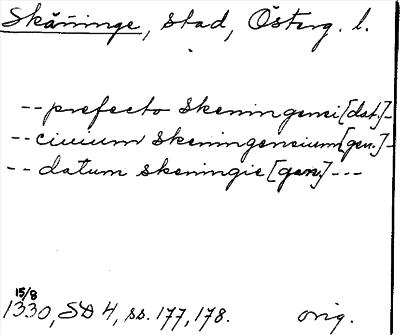 Skänninge, stad, Österg. l.
-- prefecto skeningensi [dat.] -
-- civium skeningensium [gen.] -
-- datum skeningie [gen.] ---
15/8
1330, SD 4, ss. 177, 178. orig.